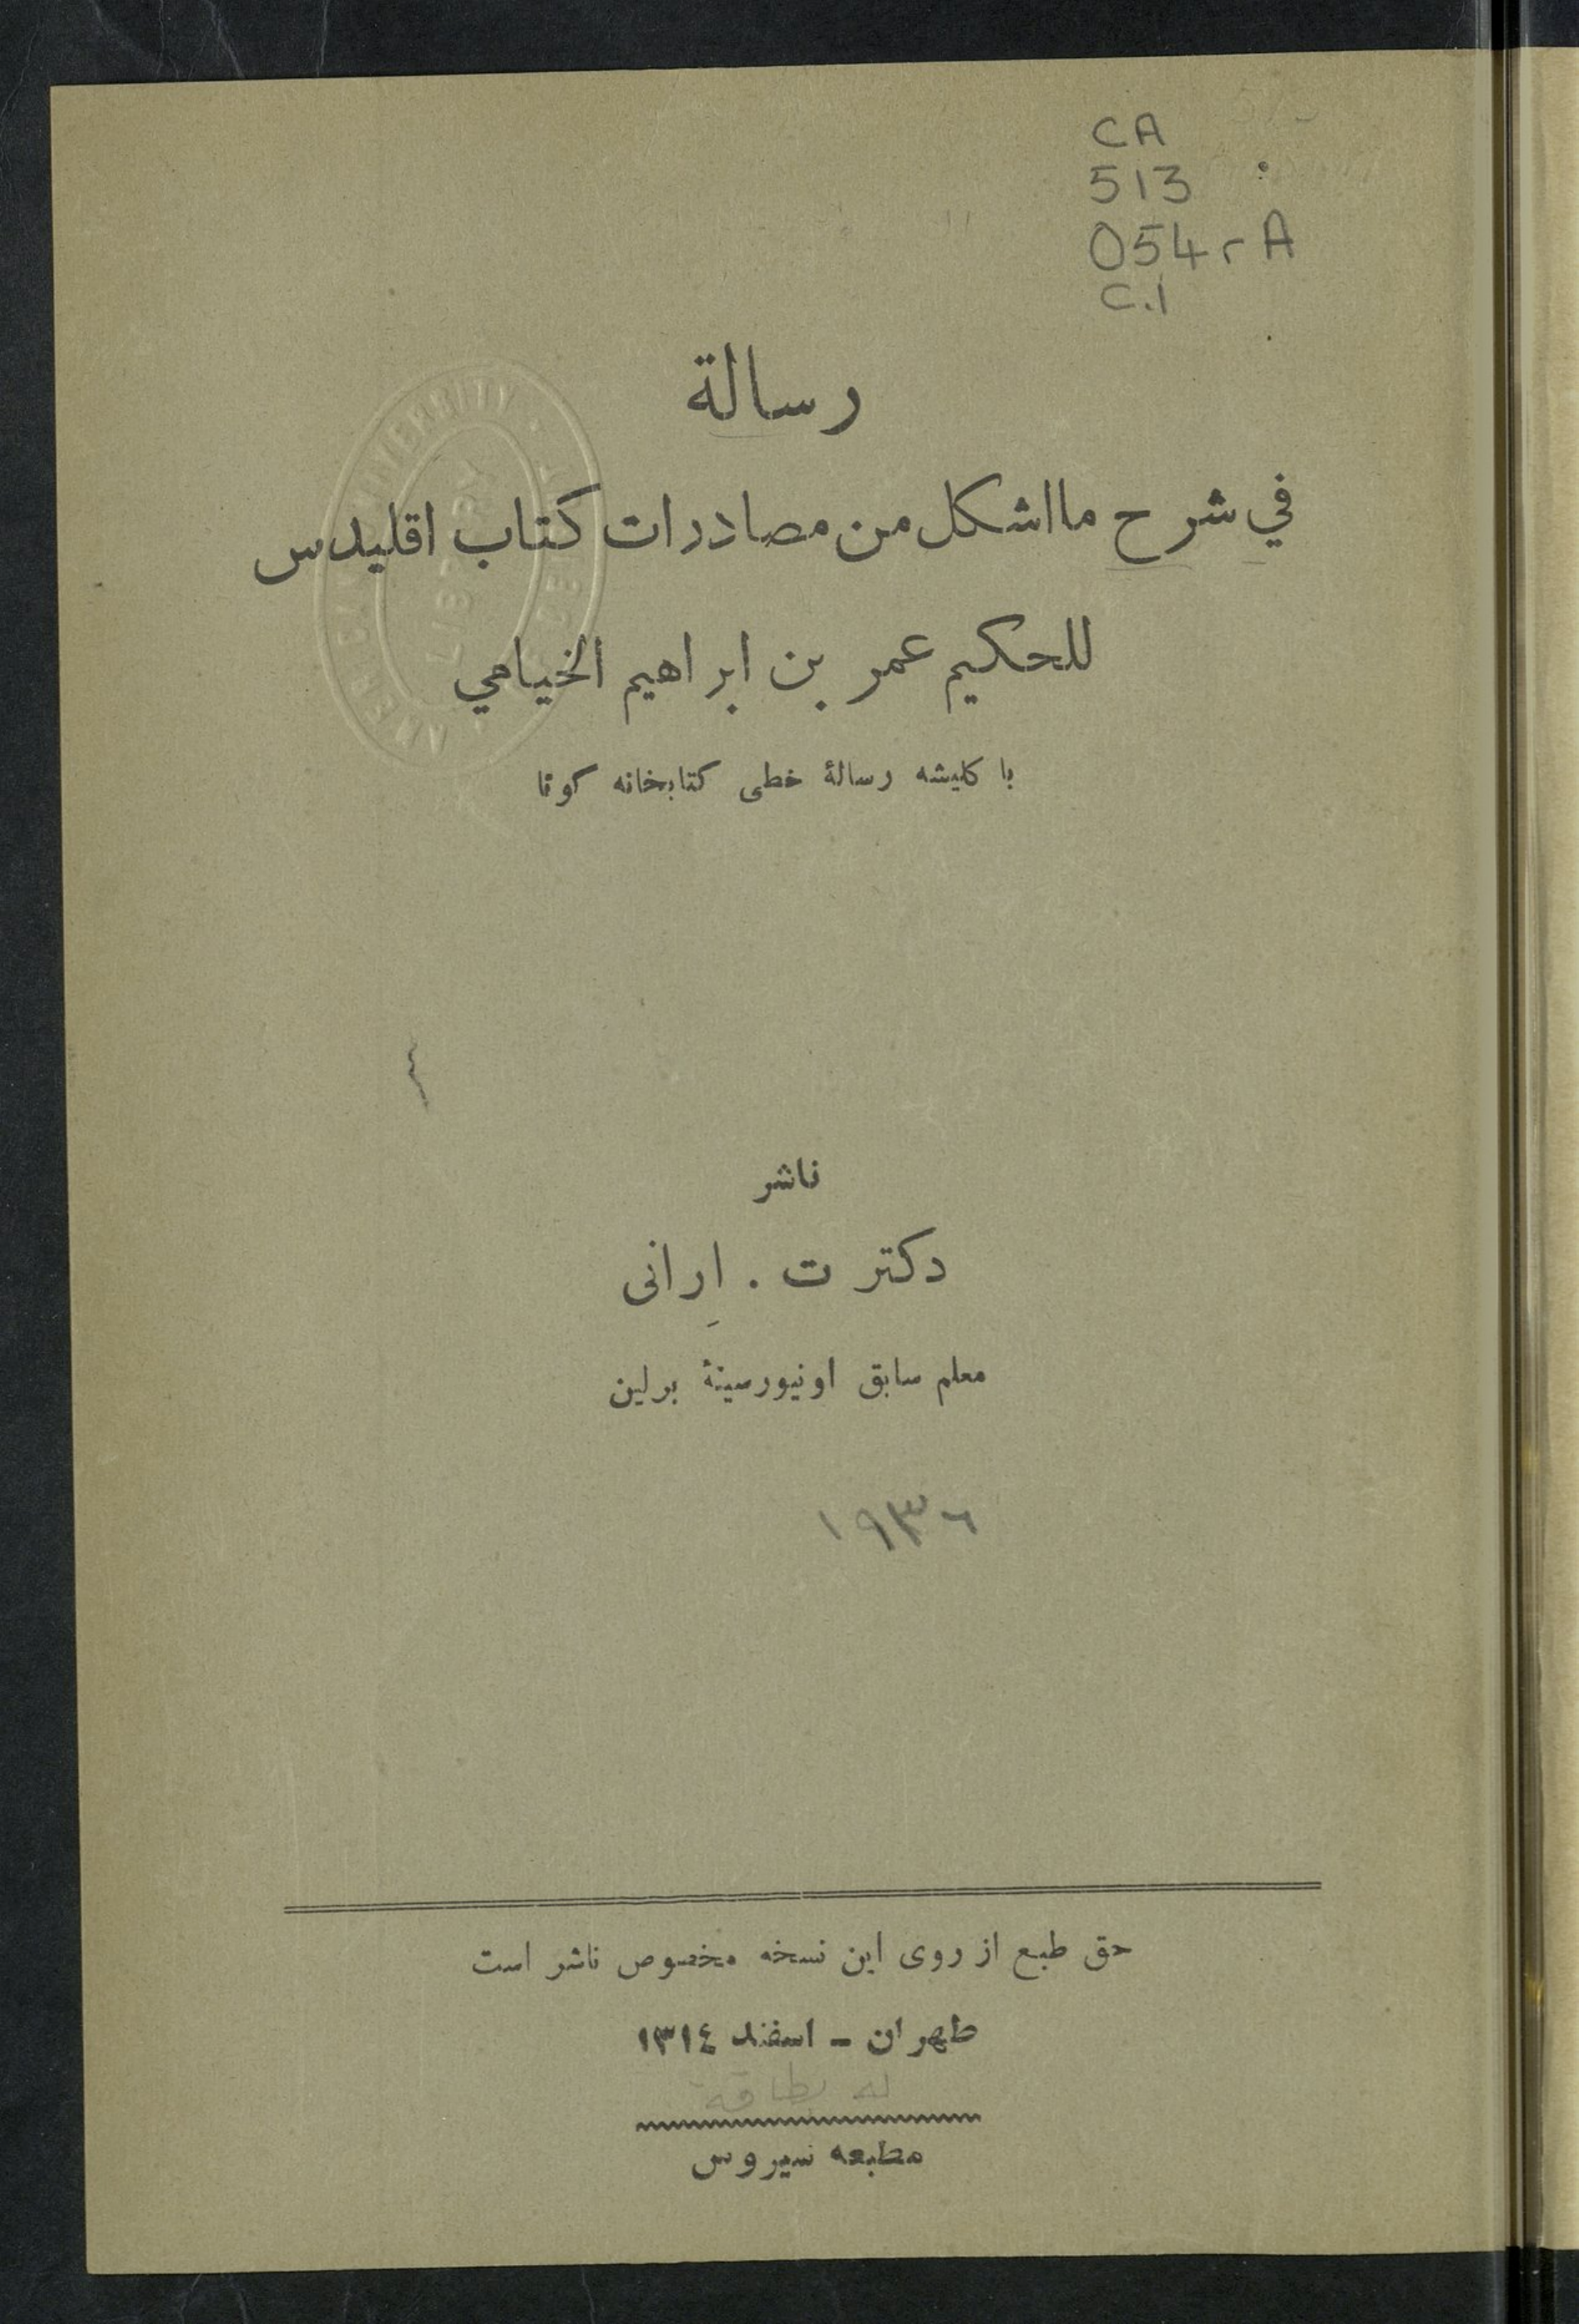 CA
513
O54rA
C.1
رسالة
في شرح ما اشكل من مصادرات كتاب اقليدس
للحكيم عمر بن ابراهيم الخيامي
با كليشه رسالۀ خطی كتابخانه كوتا
ناشر
دكتر ت . اِرانی
معلم سابق اونيورسيتۀ برلين
١٩٣٦
حق طبع از روی اين نسخه مخصوص ناشر است
طهران – اسفند ١٣١٤
له بطاقة
مطبعه سيروس